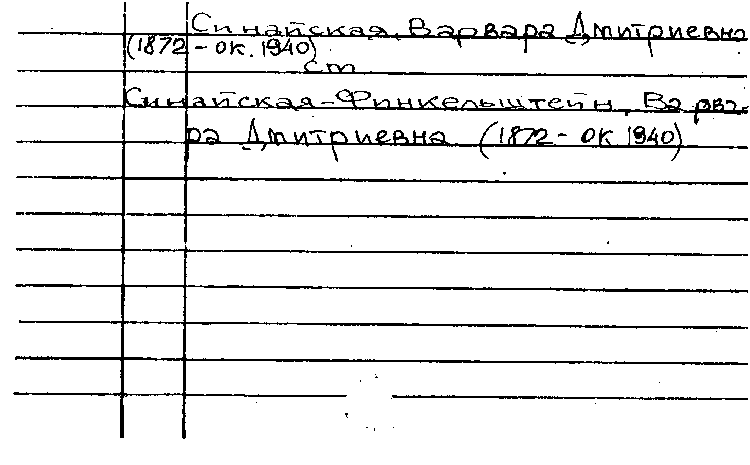 Синайская, Варвара Дмитриевна
(1872 - ок. 1940)
см
Синайская-Финкельштейн, Варва-
ра Дмитриевна (1872 - ок 1940)